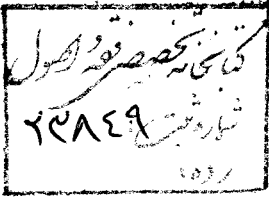 کتابخانه تخصصی فقه و اصول
شماره ثبت ۲۳۸۴۹